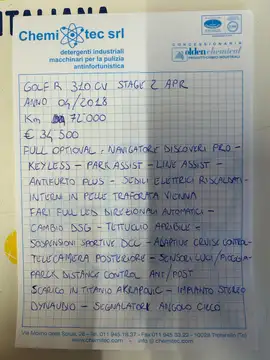 ITALIANA
Chemi tec srl
detergenti industriali
macchinari per la pulizia
antinfortunistica
CONCESSIONARIO
olden chemical
GOLF R 310 CV STAGE 2 APR
ANNO 04/2018
Km 72'000
€ 34,500
FULL OPTIONAL - NAVIGATORE DISCOVERI PRO -
KEYLESS - PARK ASSIST - LINE ASSIST -
ANTIFURTO PLUS - SEDILI ELETTRICI RISCALDATI-
INTERNI IN PELLE TRAFORATA VIENNA
FARI FULL LED DIREZIONALI AUTOMATICI -
CAMBIO DSG - TETTUCCIO APRIBILE -
SOSPENSIONI SPORTIVE DCC - ADAPTIVE CRUISE CONTROL-
TELECAMERA POSTERIORE - SENSORI LUCI/PIOGGIA-
PARCK DISTANCE CONTROL ANT/POST
SCARICO IN TITANIO AKRAPOVIC - IMPIANTO STEREO
DYNAUDIO - SEGNALATORE ANGOLO CIECO
www.chemitec.com - info@chemitec.com